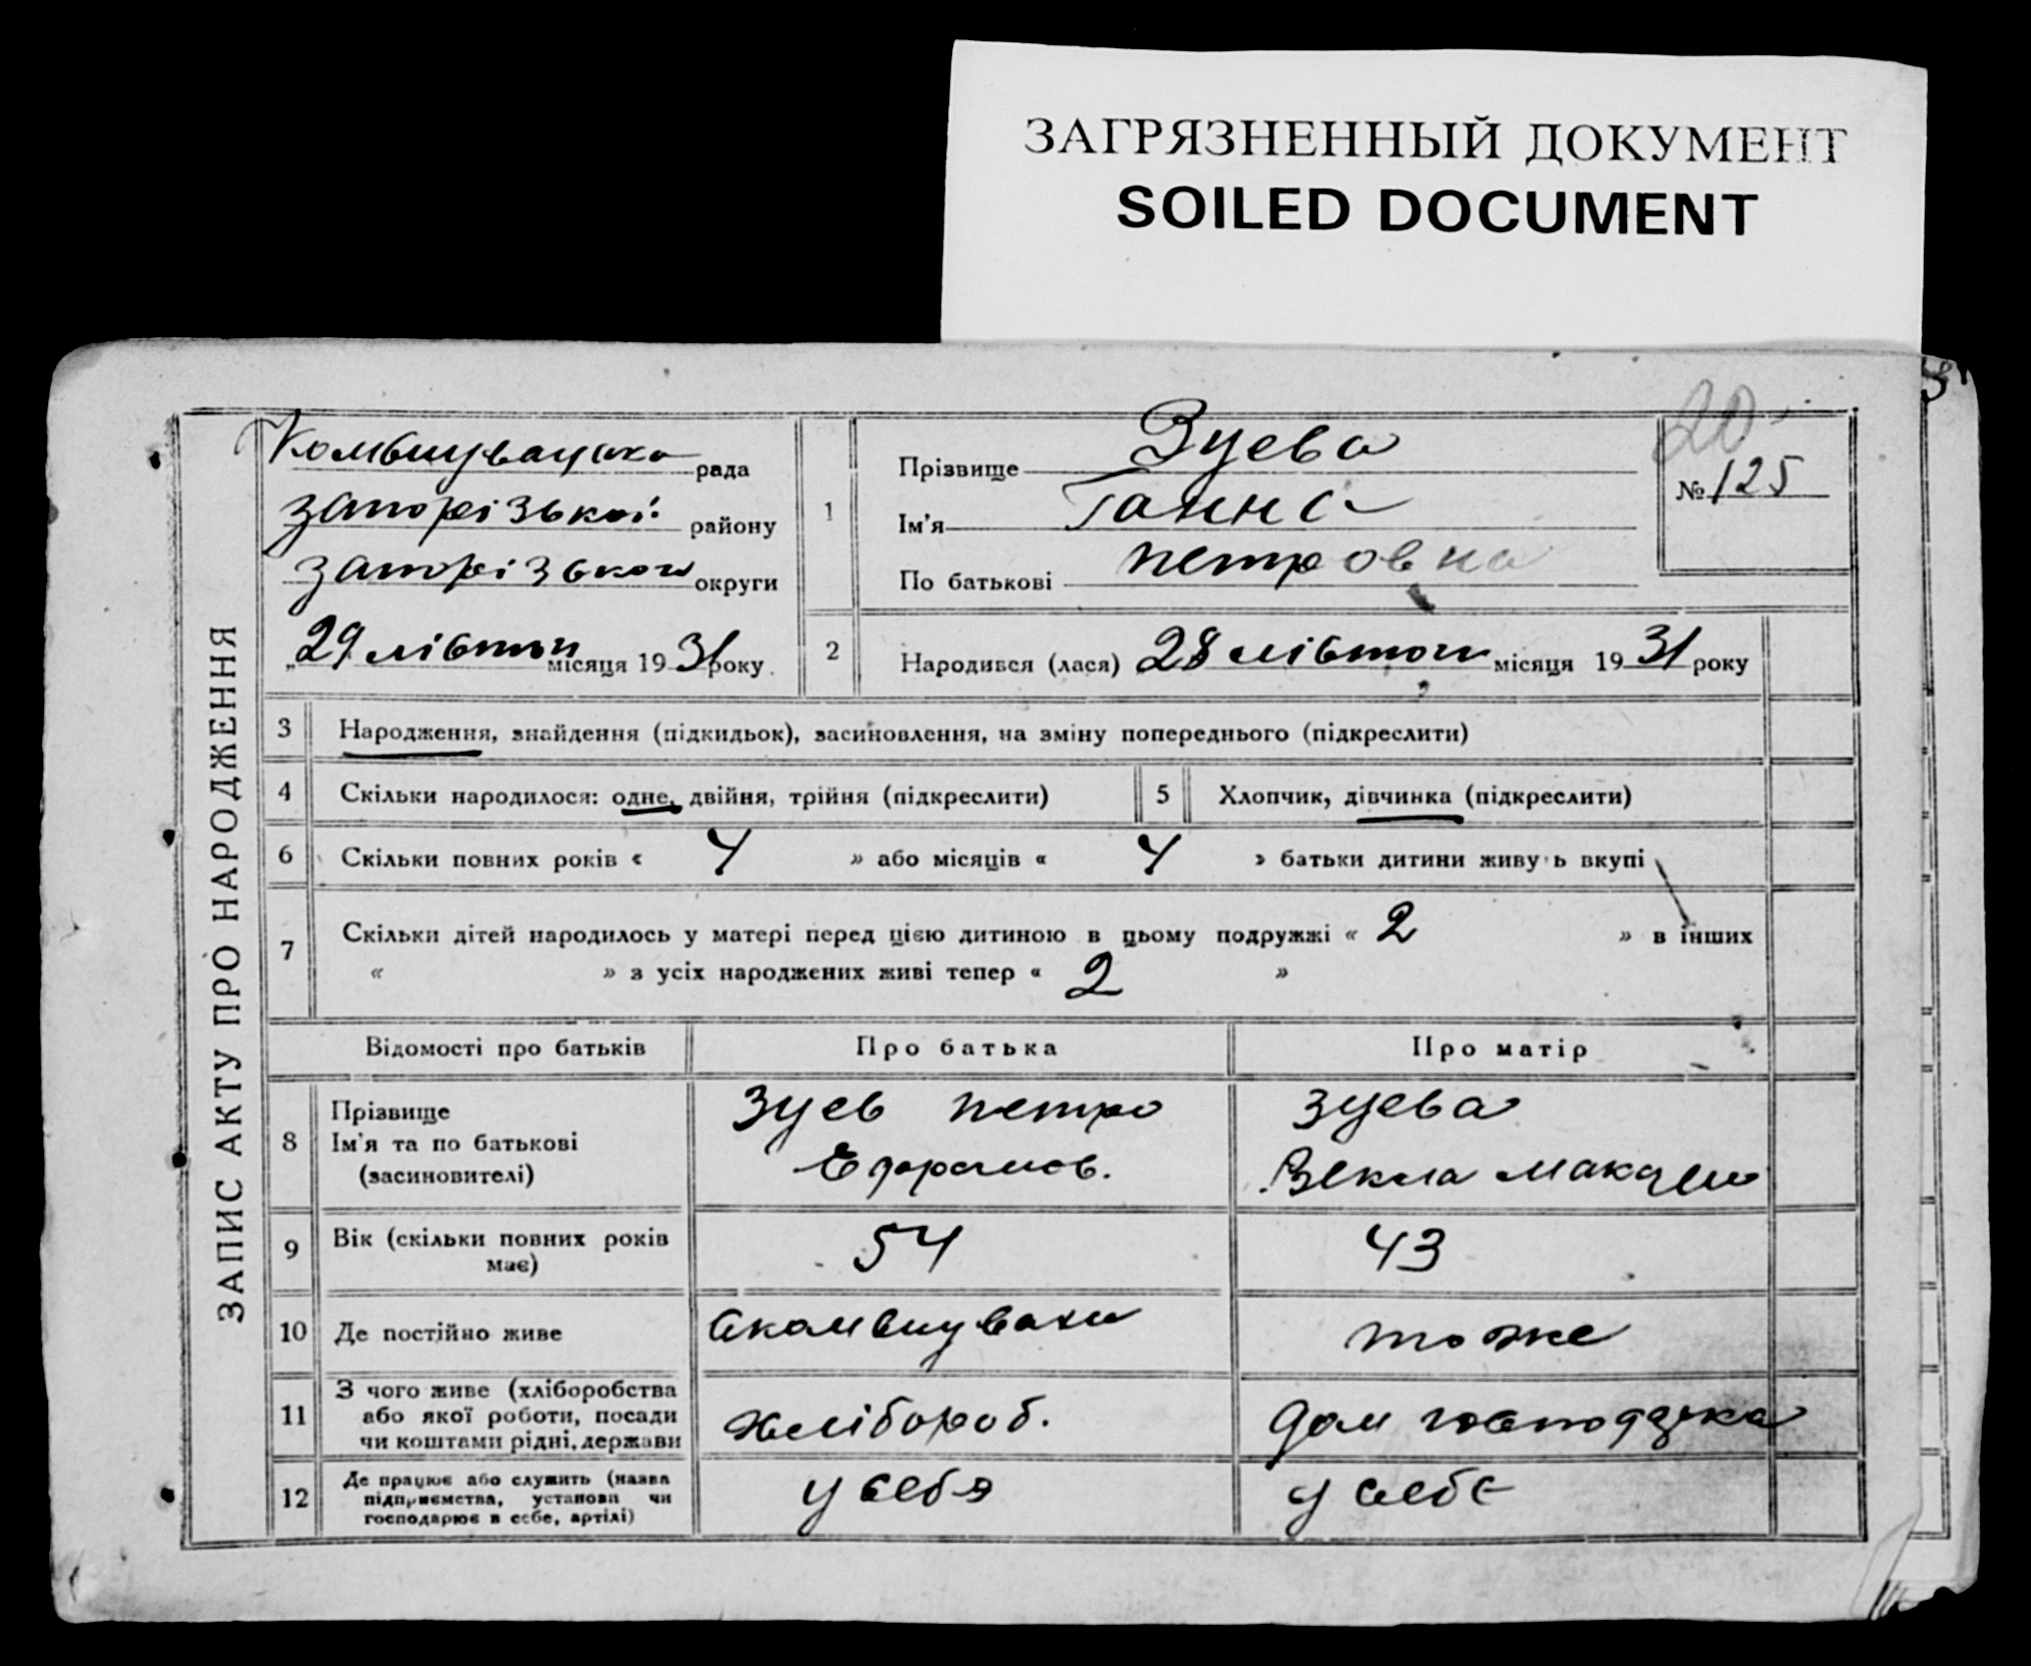 ЗАГРЯЗНЕННЫЙ ДОКУМЕНТ
SOILED DOCUMENT
ЗАПИС АКТУ ПРО НАРОДЖЕННЯ
Комишувацька рада
запорізької району
запорізького округи
„29 лівтоп місяця 1931 року.
20
№ 125
1
Прізвище Зуева
Ім'я Ганна
По батькові петровна
2 Народився (лася) 28 лівтоп місяця 1931 року
3 Народження, знайдення (підкидьок), засиновлення, на зміну попереднього (підкреслити)
4 Скільки народилося: одне, двійня, трійня (підкреслити)
5 Хлопчик, дівчинка (підкреслити)
6 Скільки повних років « 4 » або місяців « 4 » батьки дитини живуть вкупі
7 Скільки дітей народилось у матері перед цією дитиною в цьому подружжі « 2 » в інших
« » з усіх народжених живі тепер « 2 »
Відомості про батьків Про батька Про матір
8 Прізвище
Ім'я та по батькові
(засиновителі)
Зуев петро
Ефрамов.
Зуева
Векла
9 Вік (скільки повних років
має)
54
43
10 Де постійно живе
с комишуваха
тоже
11 З чого живе (хліборобства
або якої роботи, посади
чи коштами рідні, держави
хлібороб.
дом господарка
12 Де працює або служить (назва
підприємства, установи чи
господарює в себе, артілі)
у себя
у себе